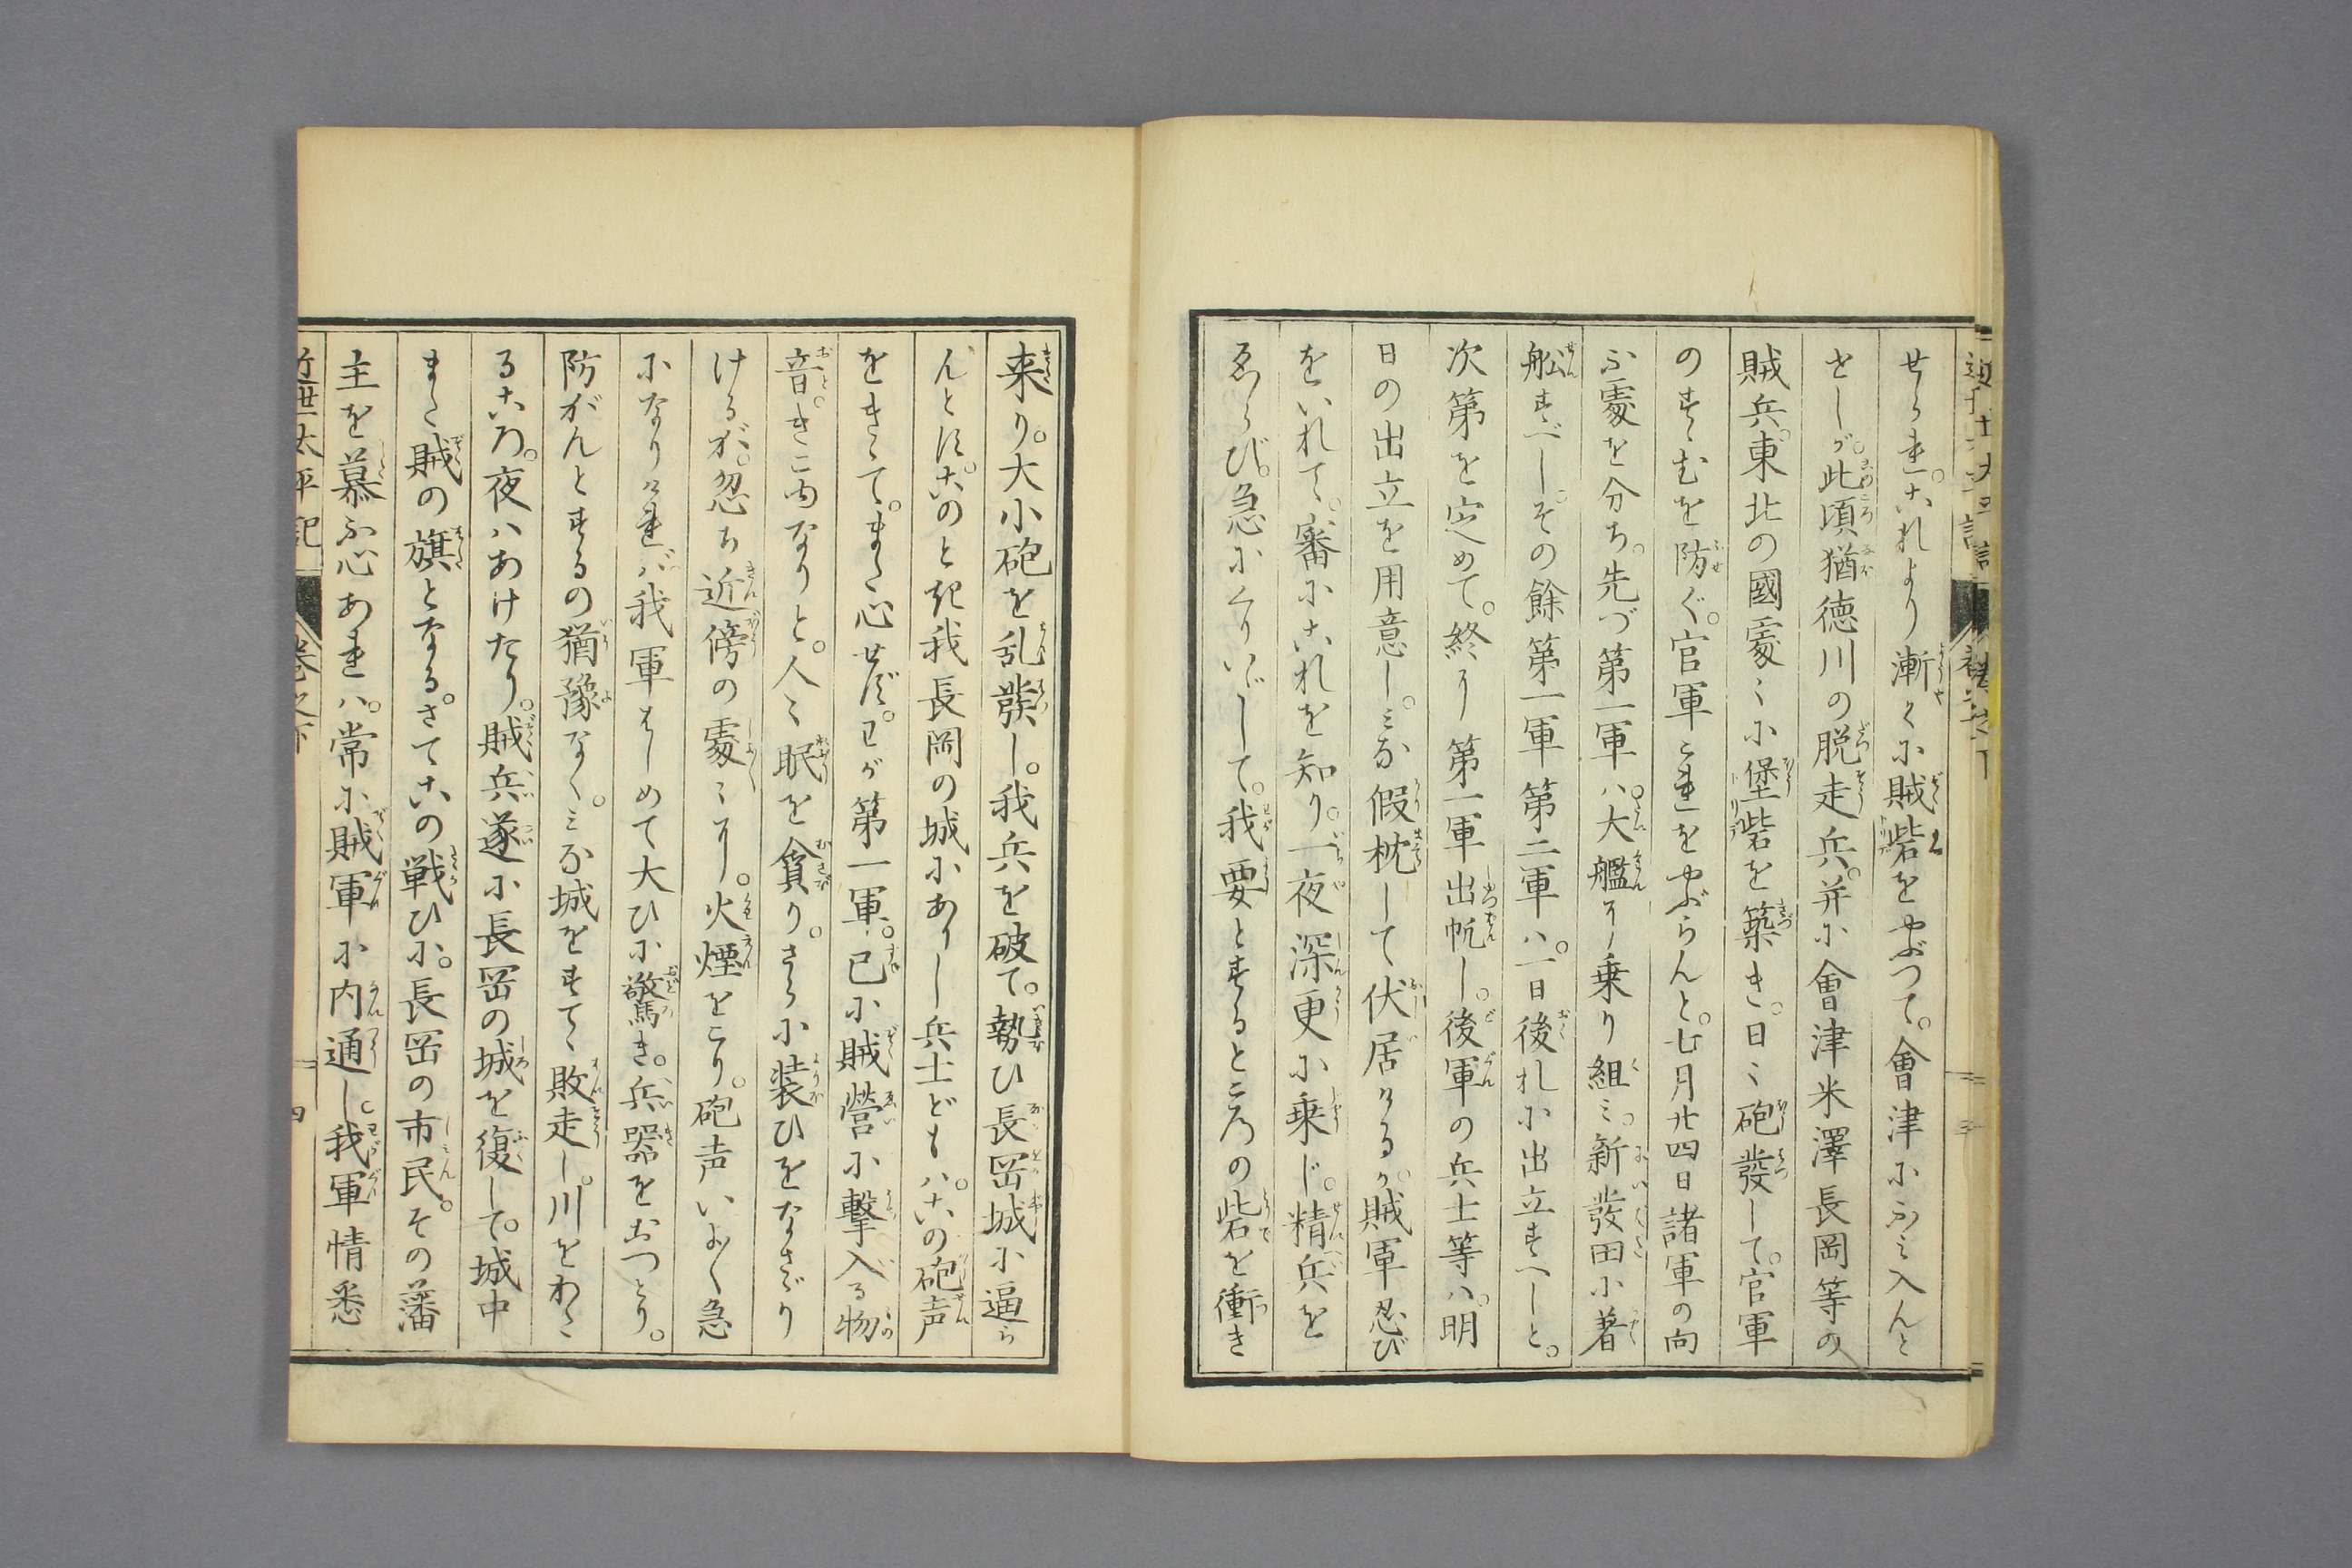 せられ。これより漸々に賊砦をやぶつて。會津にふみ入んと
せしが。此頃猶徳川の脱走兵。并に會津米澤長岡等の
賊兵。東北の國處々に堡砦を築き。日々砲發して。官軍
のすゝむを防ぐ。官軍これをやぶらんと。七月廿四日諸軍の向
ふ處を分ち。先づ第一軍ハ。大艦に乗り組ミ。新發田に着
舩すべし。その餘第一軍第二軍ハ。一日後れに出立すべしと。
次第を定めて。終に第一軍出帆し。後軍の兵士等ハ。明
日の出立を用意し。ミな假枕して伏居けるが。賊軍忍び
をいれて。審にこれを知り。一夜深更に乗じ。精兵を
ゑらび。急にくりいだして。我要とするところの砦を衝き
来り。大小砲を乱發し。我兵を破て。勢ひ長岡城に逼ら
んとす。このとき我長岡の城にありし兵士どもハ。この砲声
をきゝて。まだ心せず。わが第一軍。已に賊營に撃入る物
音。きこゆなりと。人々眠を貪り。さらに装ひをなさゞり
けるが。忽ち近傍の處々に。火煙をこり。砲声いよ〳〵急
になりければ我軍はじめて大ひに驚き。兵器をおつとり。
防がんとするの猶豫なく。ミな城をすてゝ敗走し。川をわた
るころ。夜ハあけたり。賊兵遂に長岡の城を復して。城中
まゝ賊の旗となる。さてこの戦ひに。長岡の市民。その藩
主を慕ふ心あれハ。常に賊軍に内通し。我軍情悉
近世太平記 巻之下 四